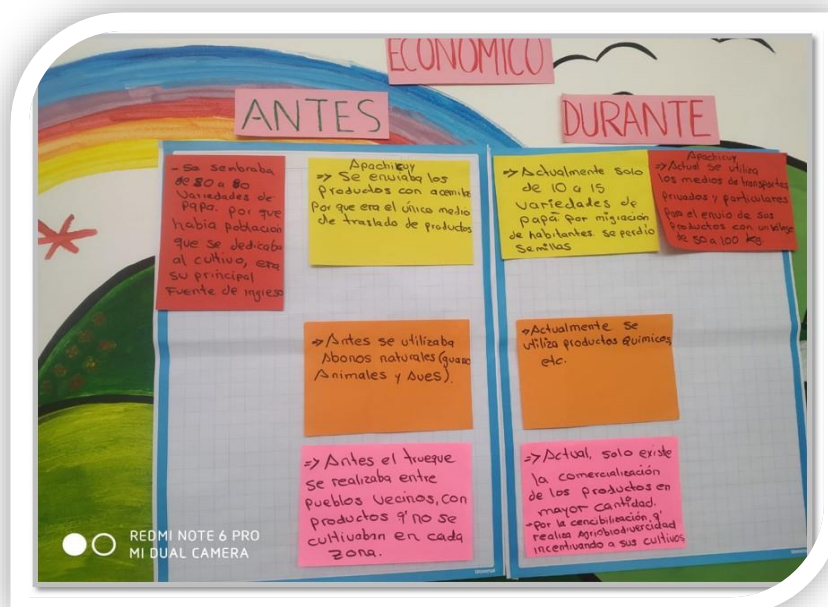 ECONOMICO
ANTES
- Se sembraba
de 80 a 80
Variedades de
Papa. por que
habia población
que se dedicaba
al cultivo, era
su principal
Fuente de ingreso
Apachicuy
=> Se enviaba los
Productos con acemila
Por que era el único medio
de traslado de productos
=> Antes se utilizaba
Abonos naturales (guano
Animales y Aves).
=> Antes el trueque
se realizaba entre
pueblos vecinos, con
productos q' no se
cultivaban en cada
zona.
DURANTE
=> Actualmente solo
de 10 a 15
variedades de
papá por migración
de habitantes. se perdio
Semillas
Apachicuy
=> Actual se utiliza
los medios de transportes
privados y particulares
para el envio de sus
productos con un
de 50 a 100 kg.
=> Actualmente se
utiliza productos químicos,
etc.
=> Actual, solo existe
la comercialización
de los productos en
mayor cantidad.
- por la cencibilización, q'
realiza Agriobiodivercidad
incentivando a sus cultivos
REDMI NOTE 6 PRO
MI DUAL CAMERA